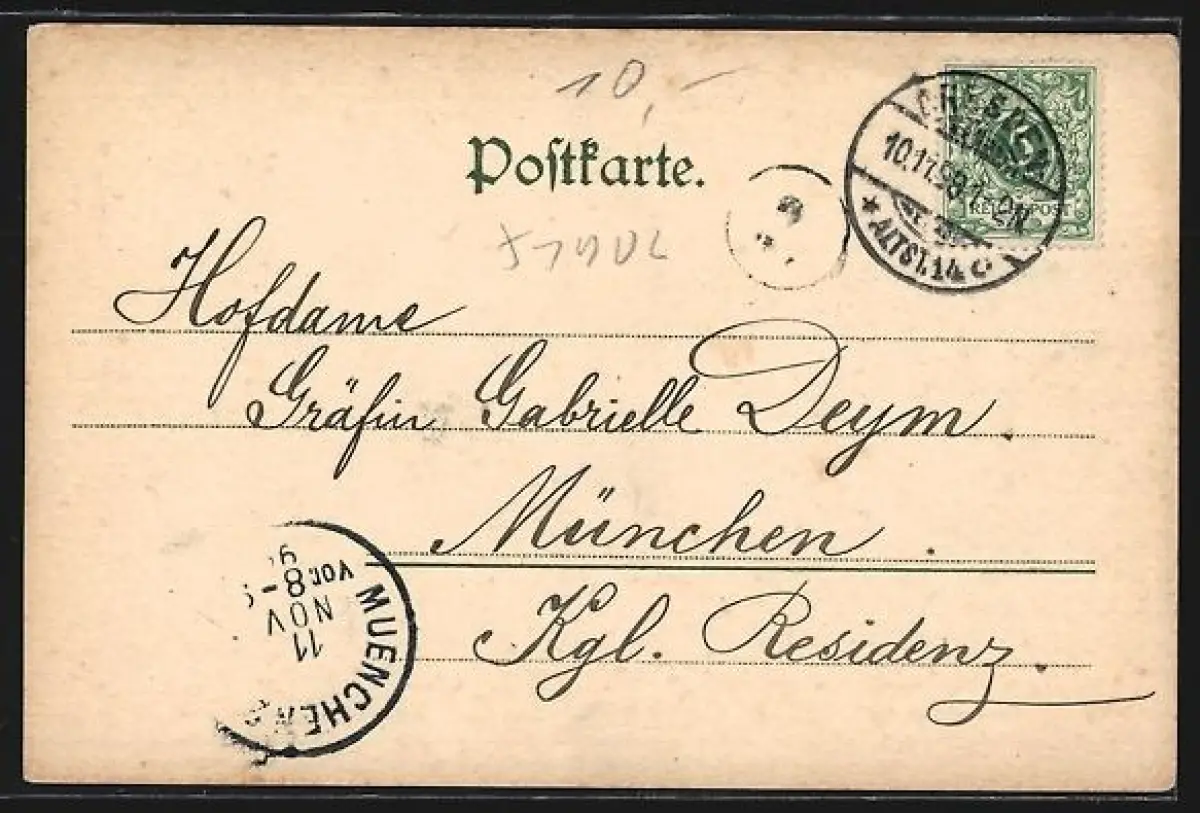 10,-
Postkarte.
DRESDEN
10.11.98.1-2N
* ALTST. 14 *
REICHSPOST
Hofdame
Gräfin Gabrielle Deym.
München.
Kgl. Residenz.
MUENCHEN 2
11
NOV
8-9
VOR